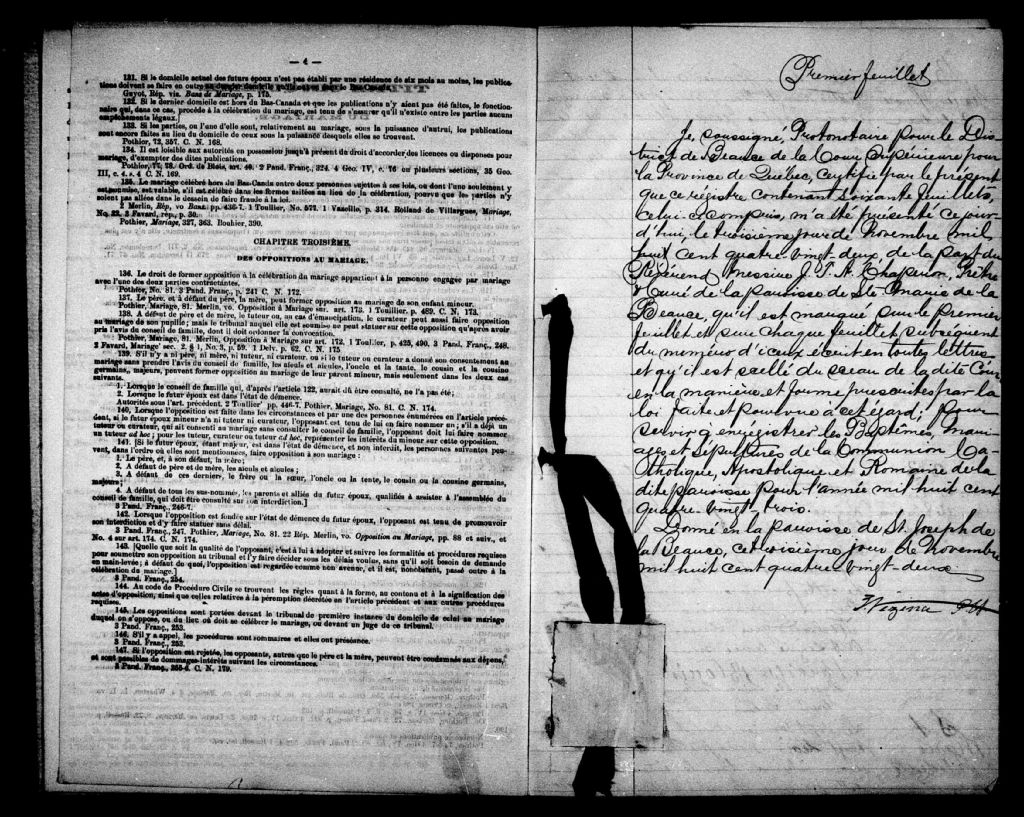 — 4 —
131. Si le domicile actuel des futurs époux n'est pas établi par une résidence de six mois au moins, les publications
doivent se faire en outre au dernier domicile qu'ils ont eu dans le Bas-Canada.
Guyot, Rép. vis. Bans de Mariage, p. 175.
132. Si le dernier domicile est hors du Bas-Canada et que les publications n'y aient pas été faites, le fonctionnaire
qui, dans ce cas, procède à la célébration du mariage, est tenu de s'assurer qu'il n'existe entre les parties aucuns
empêchements légaux.
133. Si les parties, ou l'une d'elles, sont, relativement au mariage, sous la puissance d'autrui, les publications
sont encore faites au lieu du domicile de ceux sous la puissance desquels elles se trouvent.
Pothier, 72, 357. C. N. 168.
134. Il est loisible aux autorités en possession jusqu'à présent du droit d'accorder des licences ou dispenses pour
mariage, d'exempter des dites publications.
Pothier, 77, 78. Ord. de Blois, art. 40. 2 Pand. Franç., 324. 4 Geo. IV, c. 75 ou plusieurs sections, 35 Geo.
III, c. 4. s. 4 C. N. 169.
135. Le mariage célébré hors du Bas-Canada entre deux personnes sujettes à ses lois, ou dont l'une seulement y
est soumise, est valable, s'il est célébré dans les formes usitées au lieu de la célébration, pourvu que les parties n'y
soient pas allées dans le dessein de faire fraude à la loi.
2 Merlin, Rép, vo Bans: pp. 436-7. 1 Toullier, No. 577. 1 Vazeille, p. 314. Rolland de Villargues, Mariage,
No. 22. 3 Favard, rép., p. 50.
Pothier, Mariage, 327, 363. Bouhier, 390.
CHAPITRE TROISIÈME.
DES OPPOSITIONS AU MARIAGE.
136. Le droit de former opposition à la célébration du mariage appartient à la personne engagée par mariage
avec l'une des deux parties contractantes.
Pothier, No. 81. 3 Pand. Franç., p. 241 C. N. 172.
137. Le père, et à défaut du père, la mère, peut former opposition au mariage de son enfant mineur.
Pothier, Mariage, 81. Merlin, vo. Opposition à Mariage sur. art. 173. 1 Toullier, p. 489. C. N. 173.
138. A défaut de père et de mère, le tuteur ou, au cas d'émancipation, le curateur peut aussi faire opposition
au mariage de son pupille; mais le tribunal auquel elle est soumise ne peut statuer sur cette opposition qu'après avoir
pris l'avis du conseil de famille, dont il doit ordonner la convocation.
Pothier, Mariage, 81. Merlin, Opposition à Mariage sur art. 172, 1 Toullier, p. 425, 490. 3 Pand. Franç., 248.
2 Favard, Mariage sec. 2. § 1, No. 3, p. 59. 1 Delv. p. 62. C. N. 175
139. S'il n'y a ni père, ni mère, ni tuteur, ni curateur, ou si le tuteur ou curateur a donné son consentement au
mariage sans prendre l'avis du conseil de famille, les aïeuls et aïeules, l'oncle et la tante, le cousin et la cousine
germains, majeurs, peuvent former opposition au mariage de leur parent mineur, mais seulement dans les deux cas
suivants.
1. Lorsque le conseil de famille qui, d'après l'article 122, aurait dû être consulté, ne l'a pas été;
2. Lorsque le futur époux est dans l'état de démence.
Autorités sous l'art. précédent, 2 Toullier pp. 446-7. Pothier, Mariage, No. 81. C. N. 174.
140. Lorsque l'opposition est faite dans les circonstances et par une des personnes énumérées en l'article précédent,
si le futur époux mineur n'a ni tuteur ni curateur, l'opposant est tenu de lui en faire nommer un; s'il a déjà un
tuteur ou curateur, qui ait consenti au mariage sans consulter le conseil de famille, l'opposant doit lui faire nommer
un tuteur ad hoc; pour les tuteur, curateur ou tuteur ad hoc, représenter les intérêts du mineur sur cette opposition.
141. [Si le futur époux, étant majeur, est dans l'état de démence, et non interdit, les personnes suivantes peuvent,
dans l'ordre où elles sont mentionnées, faire opposition à son mariage:
1. Le père, et, à son défaut, la mère;
2. A défaut de père et de mère, les aïeuls et aïeules;
3. A défaut de ces derniers, le frère ou la sœur, l'oncle ou la tente, le cousin ou la cousine germains,
majeurs;
4. A défaut de tous les sus-nommés, les parents et alliés du futur époux, qualifiés à assister à l'assemblée du
conseil de famille, qui doit être consulté sur son interdiction.]
3 Pand. Franç., 246-7.
142. Lorsque l'opposition est fondée sur l'état de démence du futur époux, l'opposant est tenu de promouvoir
son interdiction et d'y faire statuer sans délai.
3 Pand. Franç., 247. Pothier, Mariage, No. 81. 22 Rép. Merlin, vo. Opposition au Mariage, pp. 88 et suiv., et
No. 4 sur art. 174. C. N. 174.
143. [Quelle que soit la qualité de l'opposant, c'est à lui à adopter et suivre les formalités et procédures requises
pour soumettre son opposition au tribunal et l'y faire décider sous les délais voulus, sans qu'il soit besoin de demande
en main-levée; à défaut de quoi, l'opposition est regardée comme non avenue, et il est, nonobstant, passé outre à la
célébration du mariage.]
3 Pand. Franç., 254.
144. Au code de Procédure Civile se trouvent les règles quant à la forme, au contenu et à la signification des
actes d'opposition, ainsi que celles relatives à la péremption décrétée en l'article précédent et aux autres procédures
requises.
145. Les oppositions sont portées devant le tribunal de première instance du domicile de celui au mariage
duquel on s'oppose, ou du lieu où doit se célébrer le mariage, ou devant un juge de ce tribunal.
3 Pand. Franç., 252.
146. S'il y a appel, les procédures sont sommaires et elles ont préséance.
3 Pand. Franç., 253.
147. Si l'opposition est rejetée, les opposants, autres que le père et la mère, peuvent être condamnés aux dépens,
et sont passibles de dommages-intérêts suivant les circonstances.
3 Pand. Franç., 255-6. C. N. 179.
Premier feuillet
Je, soussigné, Protonotaire pour le Dis-
trict de Beauce de la Cour Supérieure pour
la Province de Québec, certifie par le présent
que ce régistre contenant soixante feuillets,
celui-ci compris, m'a été présenté ce jour-
d'hui, le troisième jour de Novembre mil
huit cent quatre vingt-deux, de la part du
Révérend Messire J. T. A. Chaperon, Prêtre
& Curé de la paroisse de Ste Marie de la
Beauce, qu'il est marqué sur le premier
feuillet et sur chaque feuillet subséquent
du numéro d'iceux écrit en toutes lettres
et qu'il est scellé du sceau de la dite Cour
en la manière et forme prescrites par la
loi faite et pourvue à cet égard; pour
servir à enrégistrer les Baptêmes, mari-
ages et sépultures de la Communion Ca-
tholique, Apostolique et Romaine de la
dite paroisse pour l'année mil huit cent
quatre vingt-trois.
Donné en la paroisse de St. Joseph de
la Beauce, ce troisième jour de Novembre
mil huit cent quatre vingt-deux
Vézina